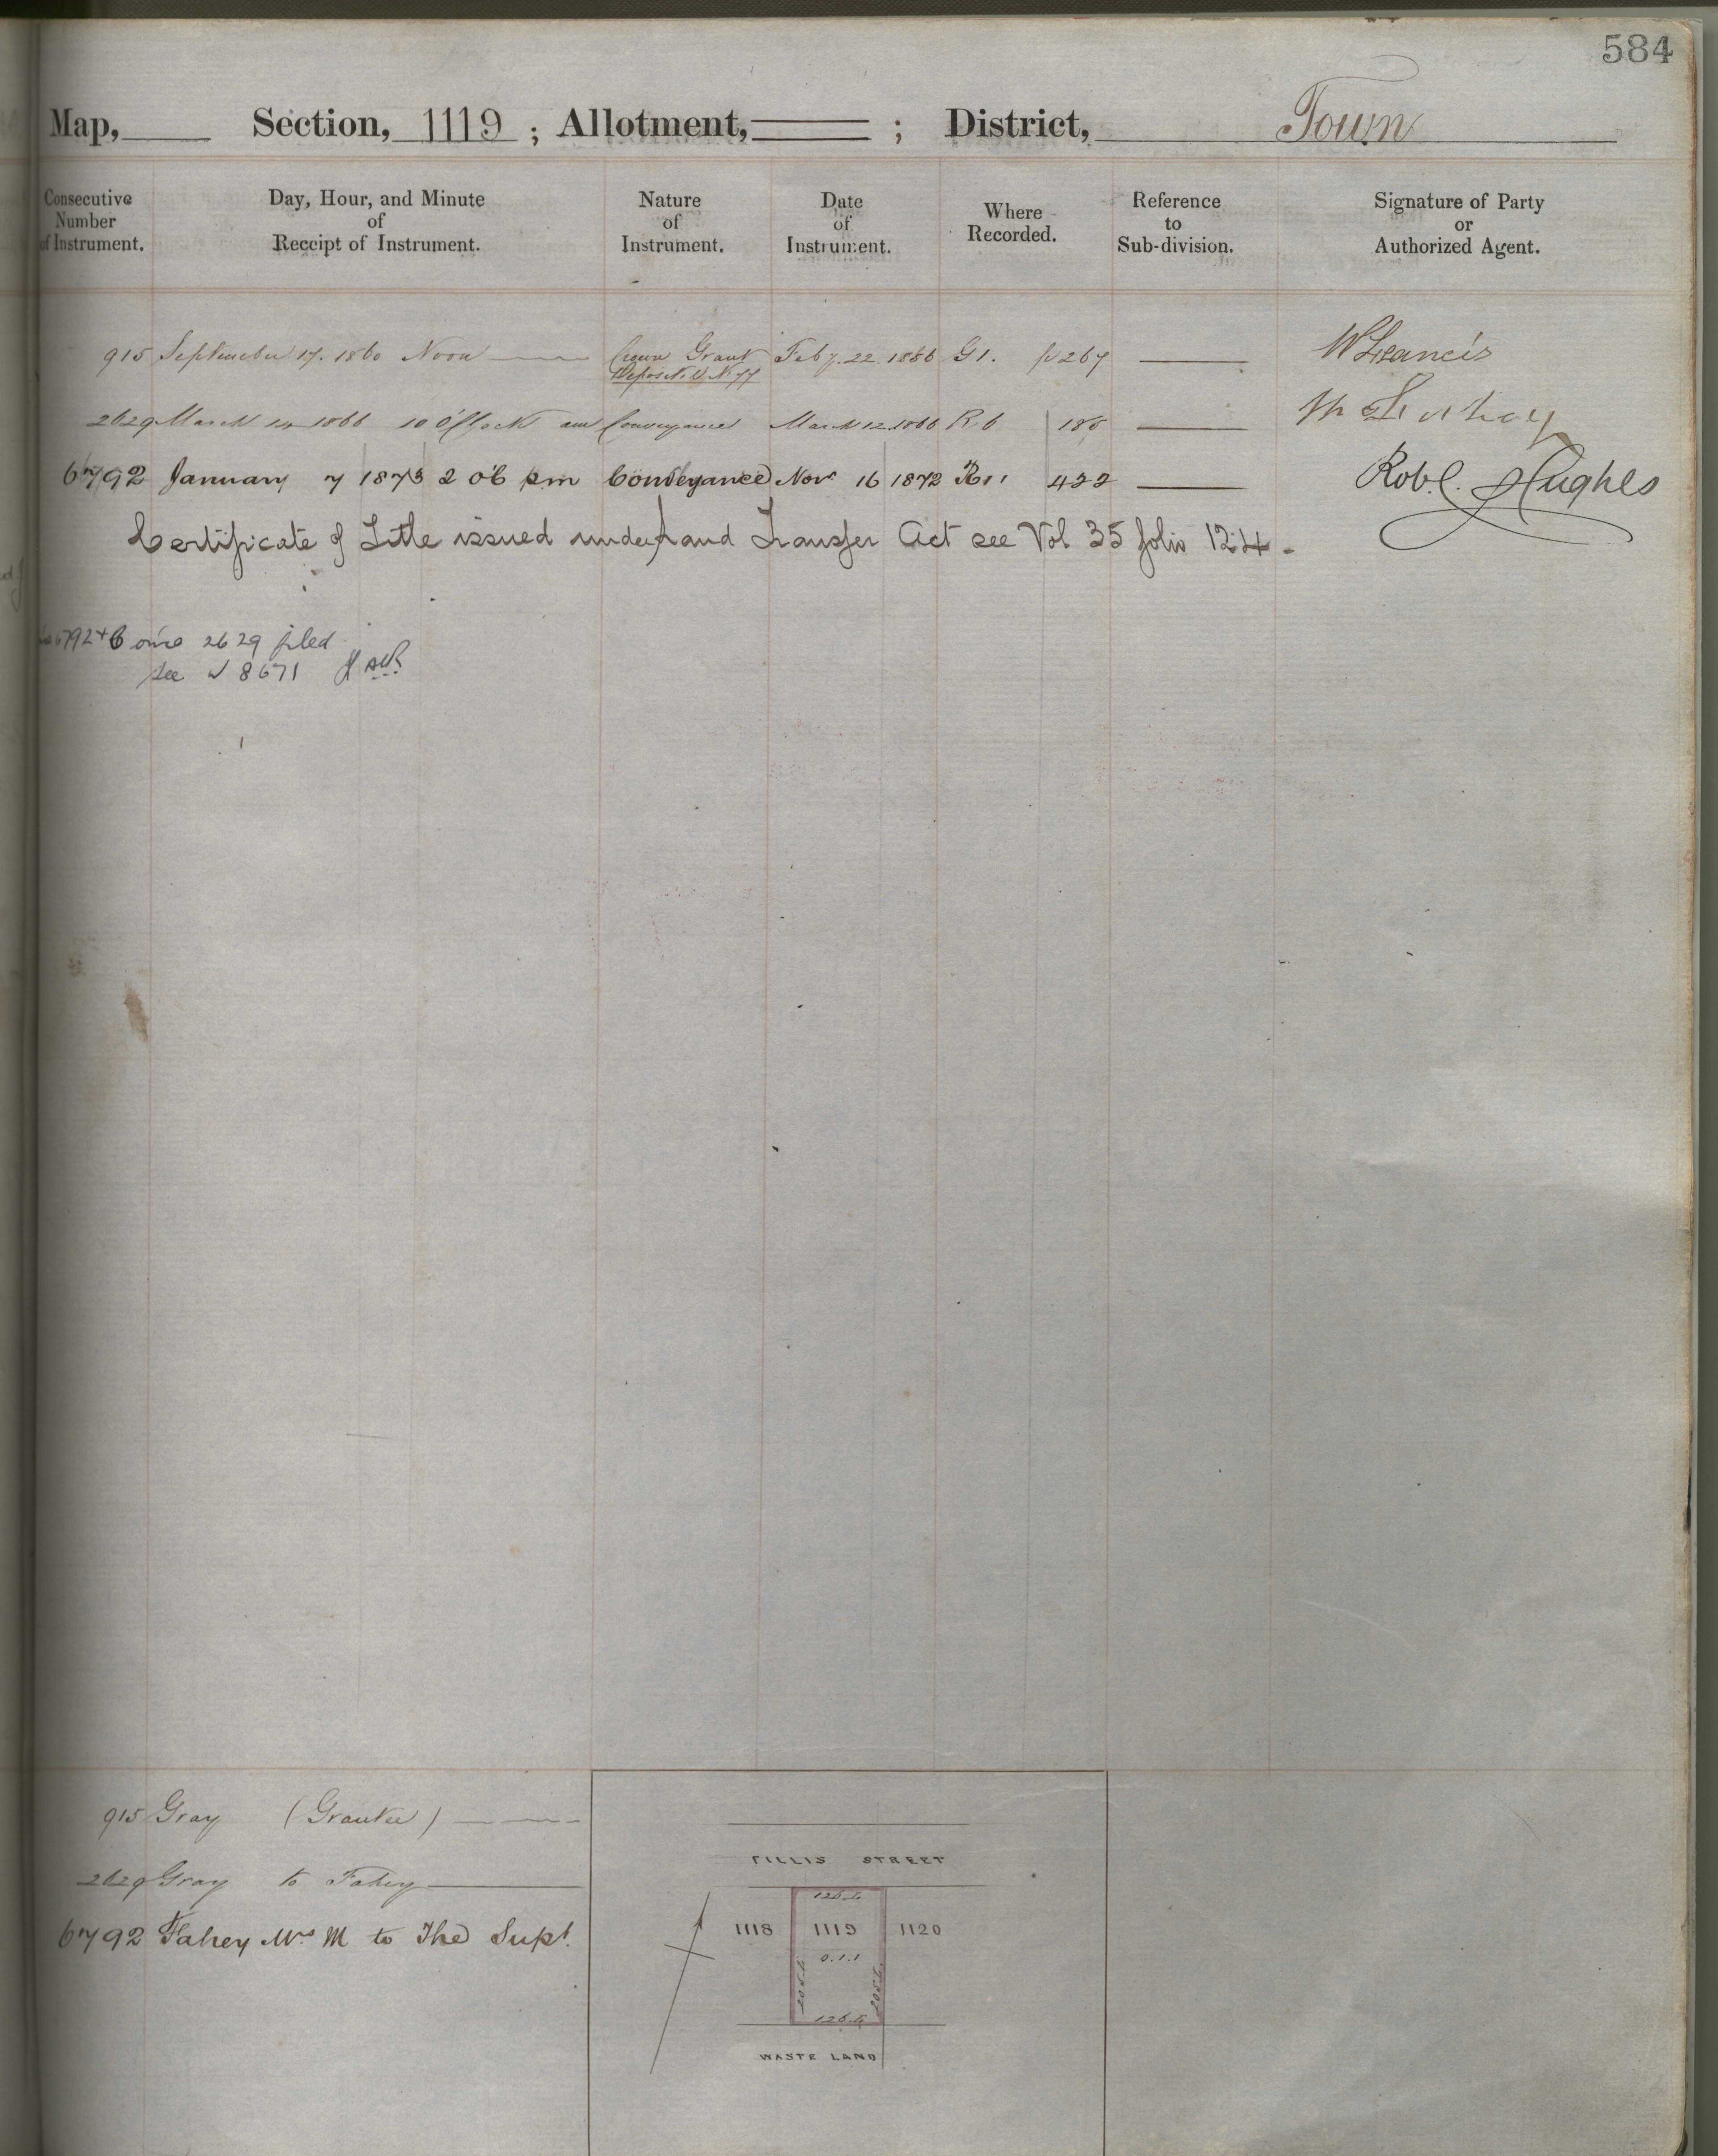 584
Map, Section, 1119 ; Allotment, ; District, Town
Consecutive Number of Instrument.
Day, Hour, and Minute of Receipt of Instrument.
Nature of Instrument.
Date of Instrument.
Where Recorded.
Reference to Sub-division.
Signature of Party or Authorized Agent.
915 September 17. 1860 Noon Crown Grant Feby. 22. G1. p 267 W Francis
Deposit
2629 March 1866 10 O'Clock am Conveyance March 12 1866 R. 6
6792 January 7 1873 2 oC pm Conveyance Novr 16 1872 R11 422 Rob. C. Hughes
Certificate of Title issued under Land Transfer Act see Vol 35 folio 124 -
6792 + 2629 filed
see 8671
915 Gray (Grantee)
2629 Gray to Fahey
6792 Fahey Mrs M to The Supt.
FILLIS STREET
126.
1118 1119 1120
0.1.1
205. 205.
126.
WASTE LAND